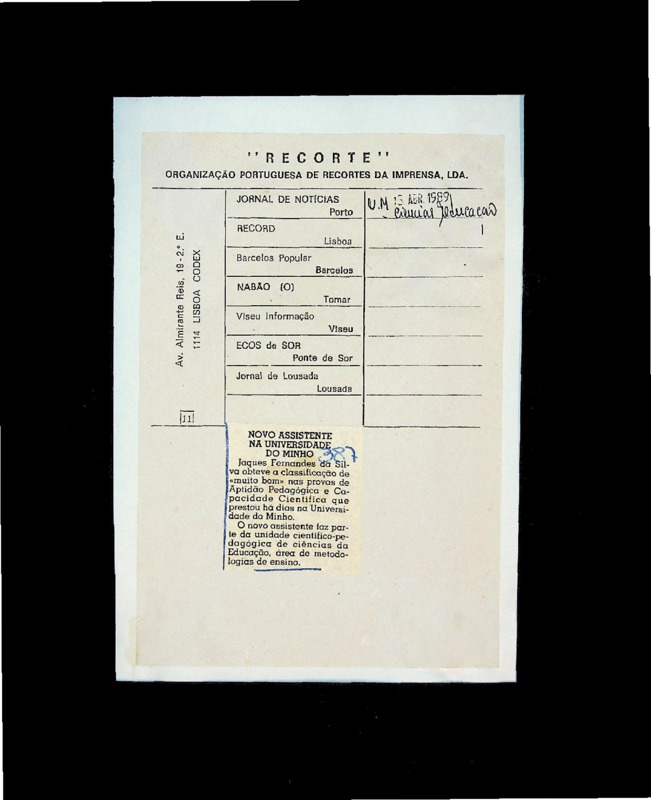 "RECORTE"
ORGANIZAÇÃO PORTUGUESA DE RECORTES DA IMPRENSA, LDA.
Av. Almirante Reis, 19-2.º E.
1114 LISBOA CODEX
11
JORNAL DE NOTÍCIAS
Porto
U.M 13 ABR. 1989
RECORD
Lisboa
Barcelos Popular
Barcelos
NABÃO (O)
Tomar
Viseu Informação
Viseu
ECOS de SOR
Ponte de Sor
Jornal de Lousada
Lousada
NOVO ASSISTENTE
NA UNIVERSIDADE
DO MINHO
987
Jaques Fernandes da Sil-
va obteve a classificação de
«muito bom» nas provas de
Aptidão Pedagógica e Ca-
pacidade Científica que
prestou há dias na Universi-
dade do Minho.
O novo assistente faz par-
te da unidade científico-pe-
dagógica de ciências da
Educação, área de metodo-
logias de ensino.